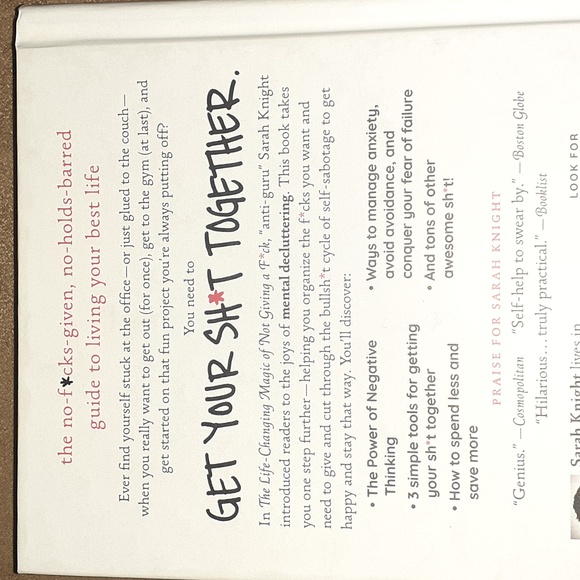 the no-f*cks-given, no-holds-barred
guide to living your best life
Ever find yourself stuck at the office—or just glued to the couch—
when you really want to get out (for once), get to the gym (at last), and
get started on that fun project you're always putting off?
You need to
GET YOUR SH*T TOGETHER.
In The Life-Changing Magic of Not Giving a F*ck, "anti-guru" Sarah Knight
introduced readers to the joys of mental decluttering. This book takes
you one step further—helping you organize the f*cks you want and
need to give and cut through the bullsh*t cycle of self-sabotage to get
happy and stay that way. You'll discover:
• The Power of Negative
Thinking
• 3 simple tools for getting
your sh*t together
• How to spend less and
save more
• Ways to manage anxiety,
avoid avoidance, and
conquer your fear of failure
• And tons of other
awesome sh*t!
PRAISE FOR SARAH KNIGHT
"Genius." —Cosmopolitan "Self-help to swear by." —Boston Globe
"Hilarious... truly practical." —Booklist
Sarah Knight lives in
LOOK FOR